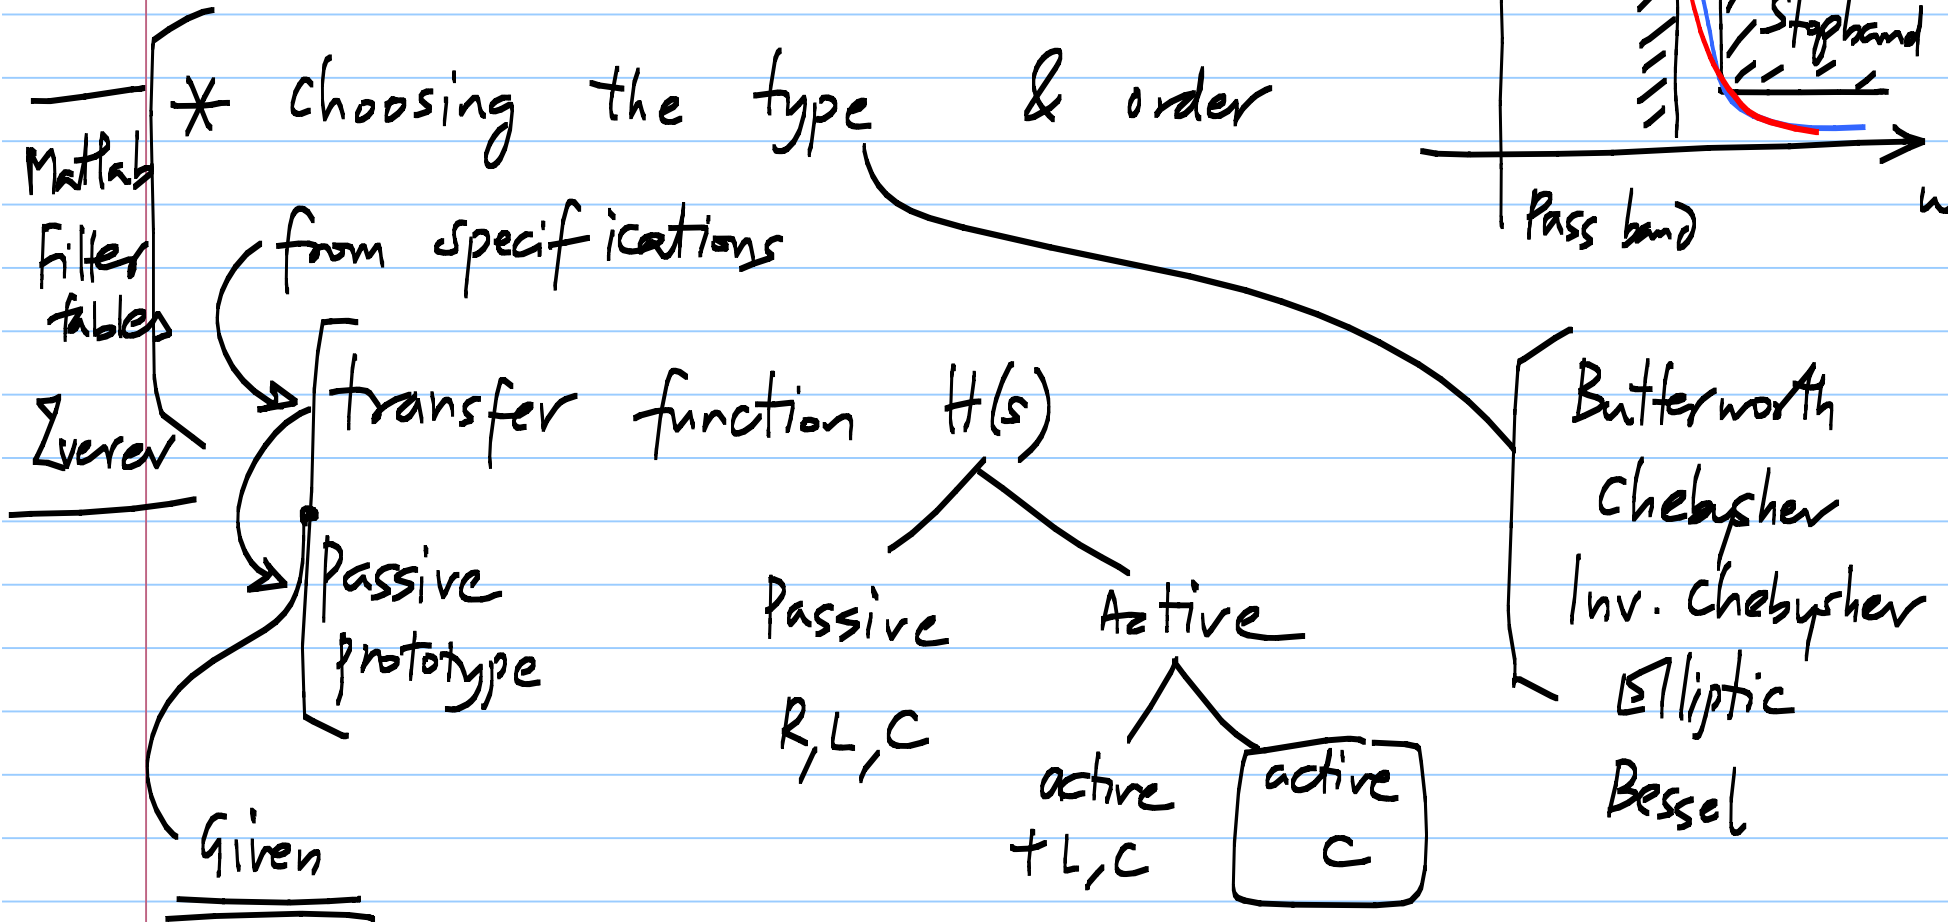 Stopband
* Choosing the type & order
Matlab
Filter
tables
Zverev
Pass band
w
from specifications
transfer function H(s)
Passive
prototype
Given
Passive
R, L, C
Active
active
+ L, C
active
C
Butterworth
Chebyshev
Inv. Chebyshev
Elliptic
Bessel